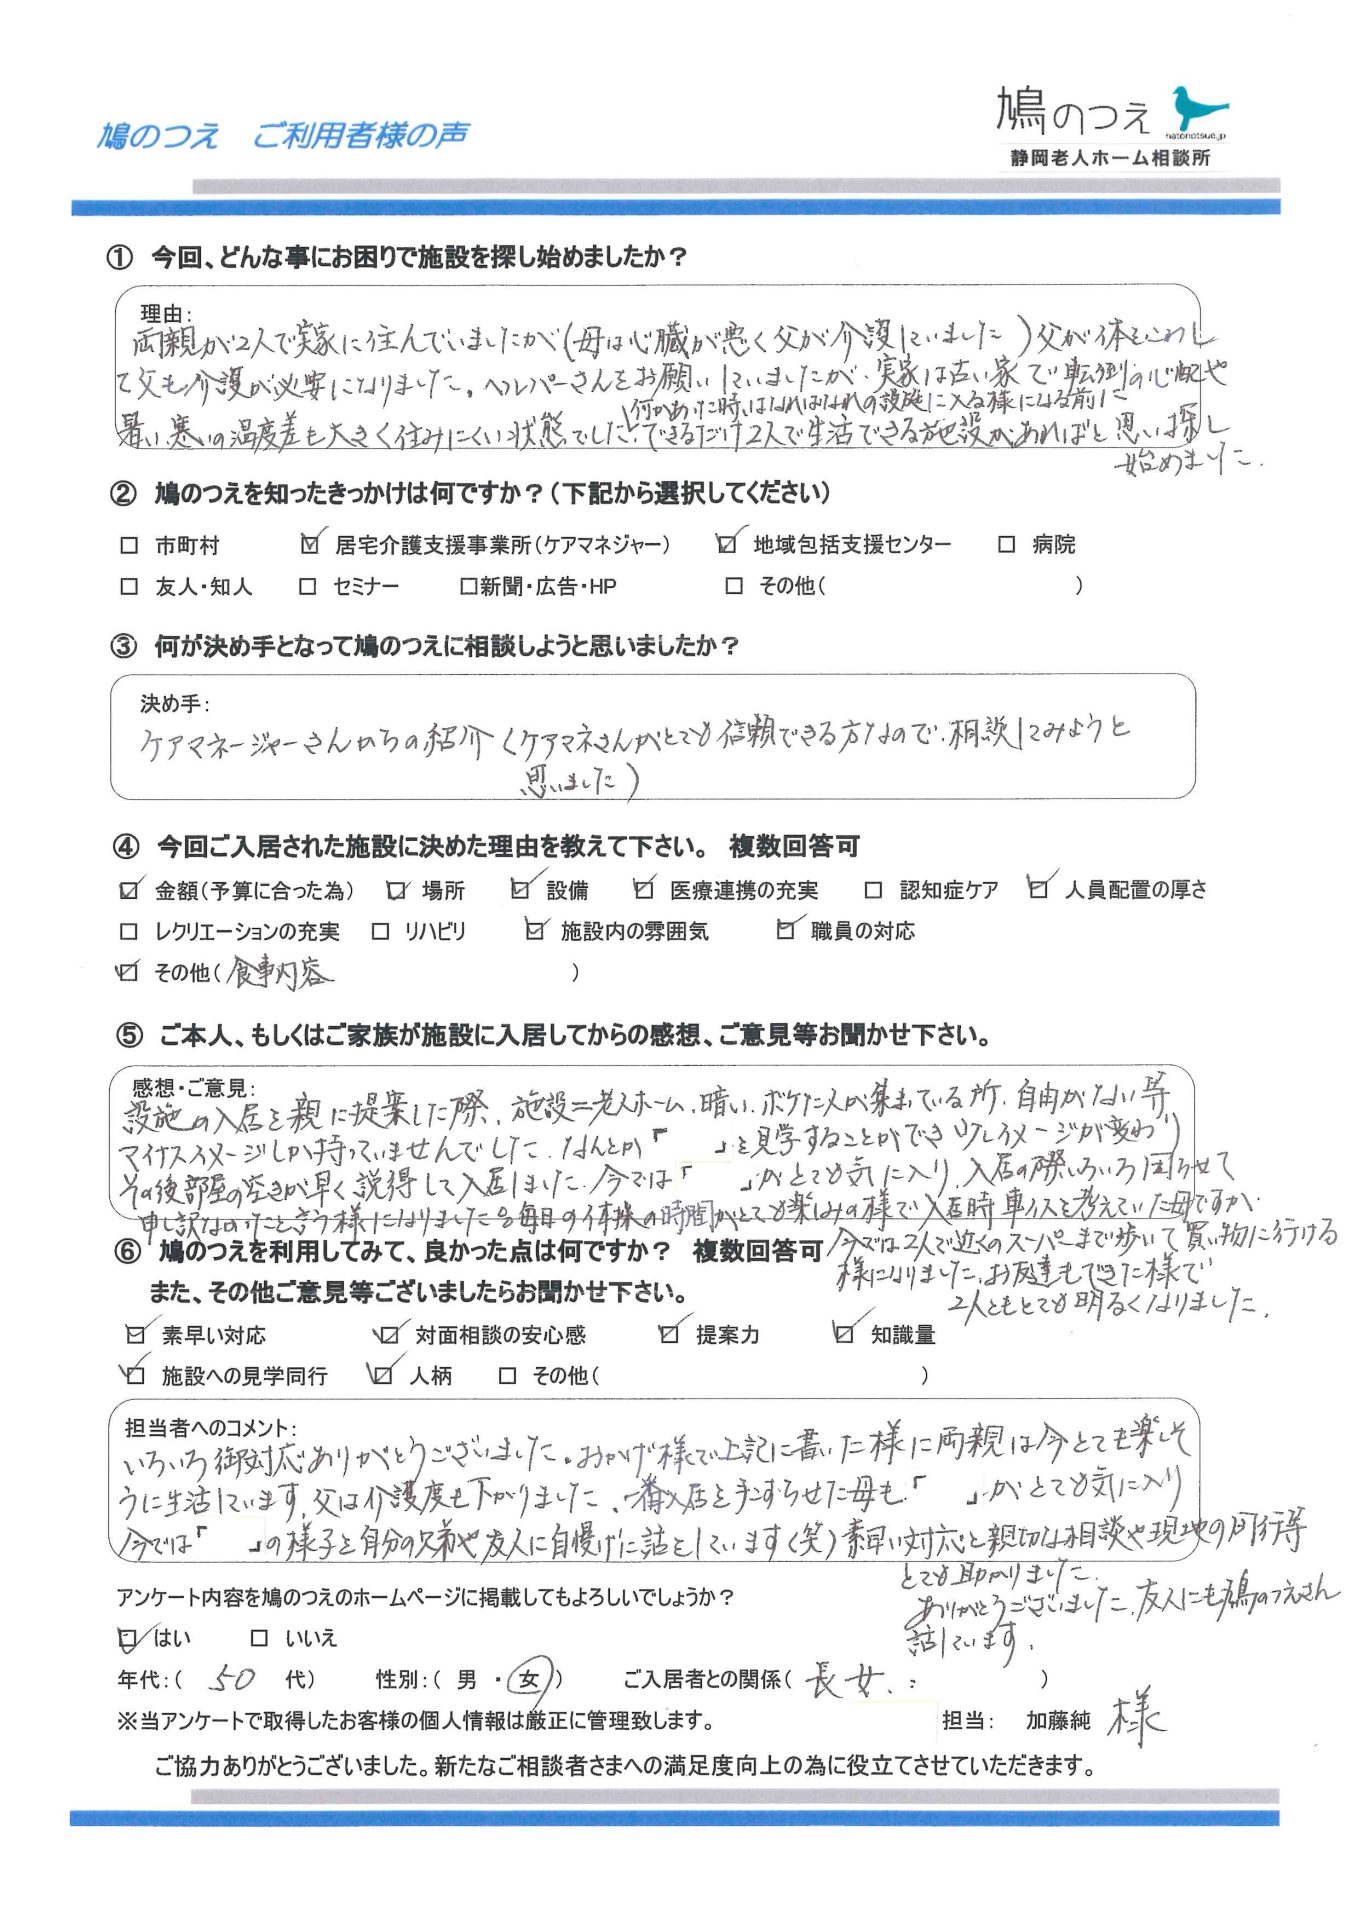 鳩のつえ　ご利用者様の声
鳩のつえ
hatonotsue.jp
静岡老人ホーム相談所
① 今回、どんな事にお困りで施設を探し始めましたか？
理由:
両親が2人で実家に住んでいましたが(母は心臓が悪く父が介護していました)父が体をこわし
て父も介護が必要になりました。ヘルパーさんをお願いしていましたが、実家は古い家で転倒の心配や
何かあった時、はなればなれの施設に入る様になる前に
暑い寒いの温度差も大きく住みにくい状態でした。できるだけ2人で生活できる施設があればと思い探し
始めました.
② 鳩のつえを知ったきっかけは何ですか？(下記から選択してください)
□ 市町村 ☑ 居宅介護支援事業所(ケアマネジャー) ☑ 地域包括支援センター □ 病院
□ 友人・知人 □ セミナー □新聞・広告・HP □ その他( )
③ 何が決め手となって鳩のつえに相談しようと思いましたか？
決め手:
ケアマネージャーさんからの紹介(ケアマネさんがとても信頼できる方なので、相談してみようと
思いました)
④ 今回ご入居された施設に決めた理由を教えて下さい。 複数回答可
☑ 金額(予算に合った為) ☑ 場所 ☑ 設備 ☑ 医療連携の充実 □ 認知症ケア ☑ 人員配置の厚さ
□ レクリエーションの充実 □ リハビリ ☑ 施設内の雰囲気 ☑ 職員の対応
☑ その他(食事内容 )
⑤ ご本人、もしくはご家族が施設に入居してからの感想、ご意見等お聞かせ下さい。
感想・ご意見:
設施の入居を親に提案した際、施設=老人ホーム、暗い、ボケた人が集まっている所、自由がない等
マイナスイメージしか持っていませんでした。なんとか「 」を見学することができ少しイメージが変わり
その後部屋の空きが早く説得して入居しました。今では「 」がとても気に入り、入居の際いろいろ困らせて
申し訳なかったと言う様になりました。毎日の体操の時間がとても楽しみの様で入居時車イスを考えていた母ですが、
今では2人で近くのスーパーまで歩いて買い物に行ける
様になりました。お友達もできた様で
2人ともとても明るくなりました.
⑥ 鳩のつえを利用してみて、良かった点は何ですか？ 複数回答可
また、その他ご意見等ございましたらお聞かせ下さい。
☑ 素早い対応 ☑ 対面相談の安心感 ☑ 提案力 ☑ 知識量
☑ 施設への見学同行 ☑ 人柄 □ その他( )
担当者へのコメント:
いろいろ御対応ありがとうございました。おかげ様で上記に書いた様に両親は今とても楽しそ
うに生活しています。父は介護度も下がりました。一番入居を手こずらせた母も「 」がとても気に入り
今では「 」の様子を自分の兄弟や友人に自慢げに話をしています(笑)素早い対応と親切な相談や現地の同行等
とても助かりました.
ありがとうございました。友人にも鳩のつえさん
話しています.
アンケート内容を鳩のつえのホームページに掲載してもよろしいでしょうか？
☑ はい □ いいえ
年代:( 50 代) 性別:( 男 ・ 女 ) ご入居者との関係( 長女. : )
※当アンケートで取得したお客様の個人情報は厳正に管理致します。 担当: 加藤純 様
ご協力ありがとうございました。新たなご相談者さまへの満足度向上の為に役立てさせていただきます。